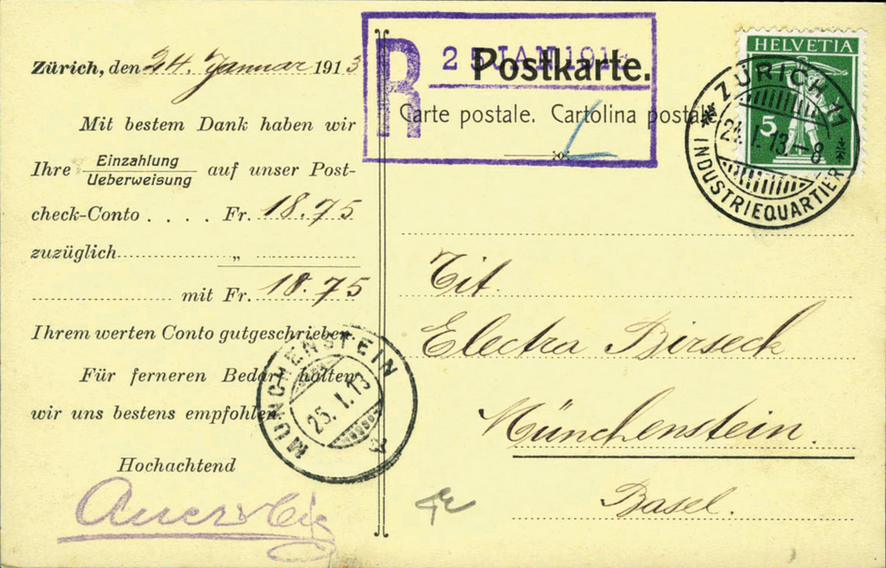 Zürich, den 24. Januar 1913
Mit bestem Dank haben wir
Ihre Einzahlung
Ueberweisung auf unser Post-
check-Conto . . . . Fr. 18.75
zuzüglich „
mit Fr. 18.75
Ihrem werten Conto gutgeschrieben.
Für ferneren Bedarf halten
wir uns bestens empfohlen.
Hochachtend
R
25 JAN 191
Postkarte.
Carte postale. Cartolina postale
HELVETIA
5
ZÜRICH 11
25. I. 13.–8
INDUSTRIEQUARTIER
Tit.
Electra Birseck
Münchenstein.
Basel.
MÜNCHENSTEIN
25. I. 13